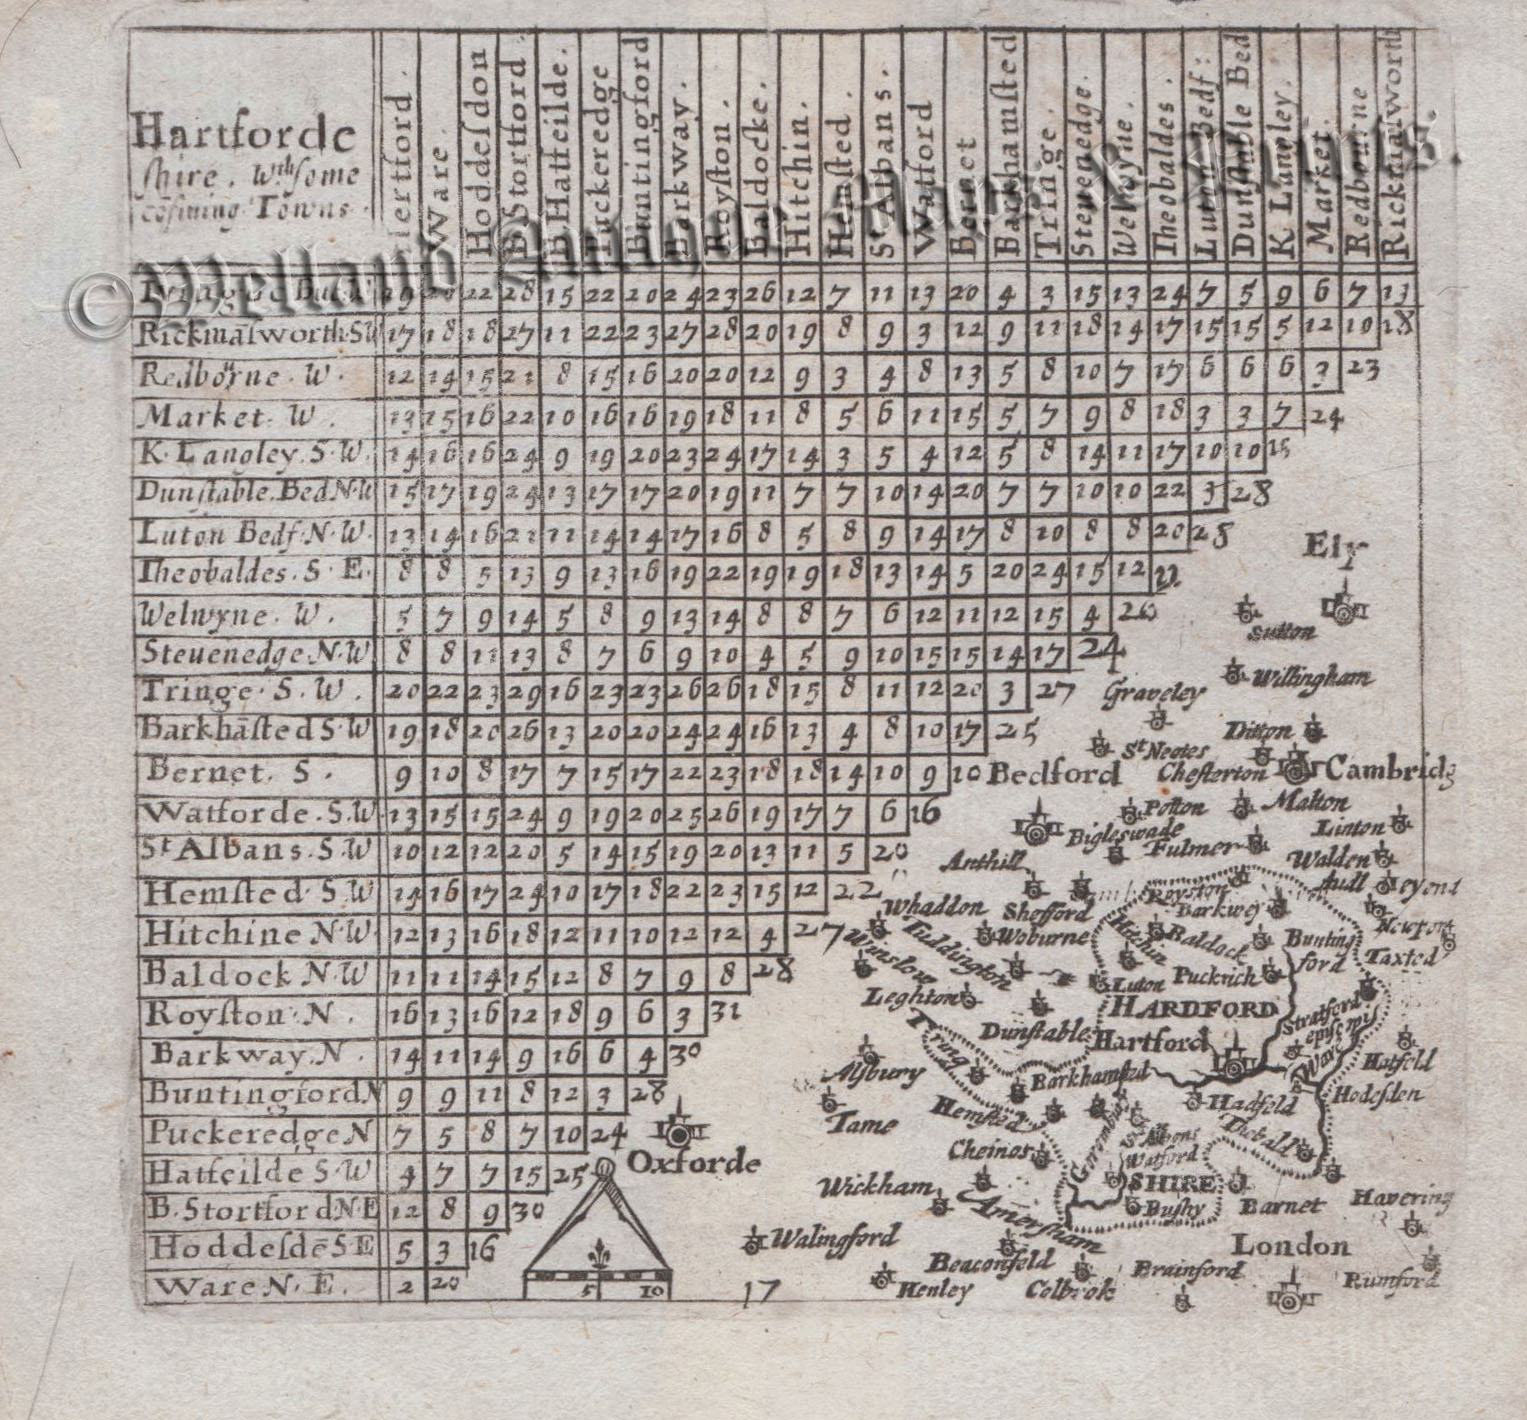 Hartforde
shire. Wth some
cōfining Towns.
Hertford.
Ware.
Hoddesdon
B Stortford
B Hatfeilde.
Puckeredge
Buntingford
Barkway.
Royston.
Baldocke.
Hitchin.
Hemsted.
St Albans.
Watford
Bernet
Barkhamsted
Tringe.
Steuenedge.
Welwyne.
Theobaldes.
Luton Bedf:
Dunstable Bed
K Langley.
Market.
Redbourne
Rickmalworth
29 20 22 28 15 22 20 24 23 26 12 7 11 13 20 4 3 15 13 24 7 5 9 6 7 13
Rickmālworth S W 17 18 18 27 11 22 23 27 28 20 19 8 9 3 12 9 11 18 14 17 15 15 5 12 10 18
Redborne. W. 12 14 15 21 8 15 16 20 20 12 9 3 4 8 13 5 8 10 7 17 6 6 6 3 23
Market. W. 13 15 16 22 10 16 16 19 18 11 8 5 6 11 15 5 7 9 8 18 3 3 7 24
K. Langley. S. W. 14 16 16 24 9 19 20 23 24 17 14 3 5 4 12 5 8 14 11 17 10 10 15
Dunstable. Bed N. W 15 17 19 24 13 17 17 20 19 11 7 7 10 14 20 7 7 10 10 22 3 28
Luton Bedf. N. W. 13 14 16 21 11 14 14 17 16 8 5 8 9 14 17 8 10 8 8 20 28
Theobaldes. S. E. 8 8 5 13 9 13 16 19 22 19 19 18 13 14 5 20 24 15 12 12
Welwyne. W. 5 7 9 14 5 8 9 13 14 8 8 7 6 12 11 12 15 4 20
Steuenedge N. W 8 8 11 13 8 7 6 9 10 4 5 9 10 15 15 14 17 24
Tringe. S. W. 20 22 23 29 16 23 23 26 26 18 15 8 11 12 20 3 27
Barkhāsted S. W 19 18 20 26 13 20 20 24 24 16 13 4 8 10 17 25
Bernet. S. 9 10 8 17 7 15 17 22 23 18 18 14 10 9 10
Watforde. S. W 13 15 15 24 9 19 20 25 26 19 17 7 6 16
St Albans. S. W 10 12 12 20 5 14 15 19 20 13 11 5 20
Hemsted. S. W 14 16 17 24 10 17 18 22 23 15 12 22
Hitchine N. W. 12 13 16 18 12 11 10 12 12 4 27
Baldock N. W 11 11 14 15 12 8 7 9 8 28
Royston. N. 16 13 16 12 18 9 6 3 31
Barkway. N. 14 11 14 9 16 6 4 30
Buntingford N 9 9 11 8 12 3 28
Puckeredge N 7 5 8 7 10 24
Hatfeilde S. W 4 7 7 15 25
B. Stortford N. E 12 8 9 30
Hoddesdē S E 5 3 16
Ware N. E. 2 20
Ely
Sutton
Willingham
Graveley
Ditton
St Neotes
Bedford
Chesterton
Cambridg
Potton
Malton
Bigleswade
Linton
Fulmer
Anthill
Walden
Audl
eyend
Royston
Barkwey
Whaddon
Shefford
Newport
Hitchin
Baldock
Bunting
ford
Taxted
Woburne
Tuddington
Winslow
Luton
Puckrich
Leghton
HARDFORD
Stratford
episcopi
Dunstable
Hartford
Tring
Ware
Hatfeld
Alsbury
Barkhamsted
Hodesden
Tame
Hemsted
Hadfeld
Theball
Cheinos
St Albons
Watford
Wickham
SHIRE
Havering
Bushy
Barnet
Amersham
Walingford
London
Beaconfeld
Brainford
Rumford
Henley
Colbrok
Oxforde
5 10
17
© Welland Antique Maps & Prints.